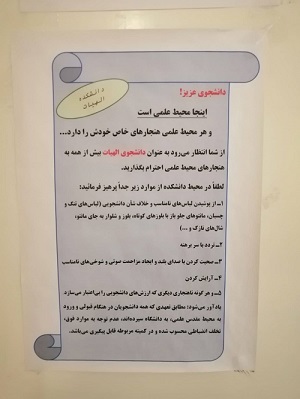 دانشکده
الهیات
دانشجوی عزیز!
اینجا محیط علمی است
و هر محیط علمی هنجارهای خاص خودش را دارد...
از شما انتظار می‌رود به عنوان دانشجوی الهیات بیش از همه به
هنجارهای محیط علمی احترام بگذارید.
لطفاً در محیط دانشکده از موارد زیر جداً پرهیز فرمائید:
۱ـ از پوشیدن لباس‌های نامناسب و خلاف شأن دانشجویی (لباس‌های تنگ و
چسبان، مانتوهای جلو باز یا بلوزهای کوتاه، بلوز و شلوار به جای مانتو،
شال‌های نازک و ...)
۲ـ تردد با سر برهنه
۳ـ صحبت کردن با صدای بلند و ایجاد مزاحمت صوتی و شوخی‌های نامناسب
۴ـ آرایش کردن
۵ـ و هر گونه ناهنجاری دیگری که ارزش‌های دانشجویی را بی‌اعتبار می‌سازد
یادآور می‌شود: مطابق تعهدی که همه دانشجویان در هنگام قبولی و ورود
به محیط مقدس علمی، به دانشگاه سپرده‌اند، عدم توجه به موارد فوق،
تخلف انضباطی محسوب شده و در کمیته مربوطه قابل پیگیری می‌باشد.